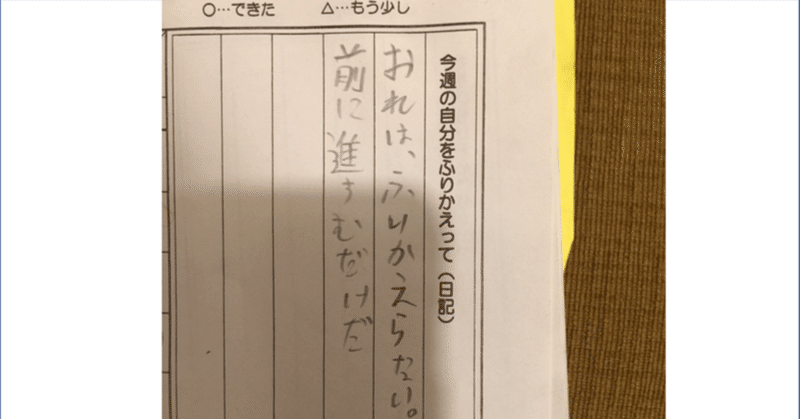 ○…できた　△…もう少し
今週の自分をふりかえって（日記）
おれは、ふりかえらない。
前に進すむだけだ